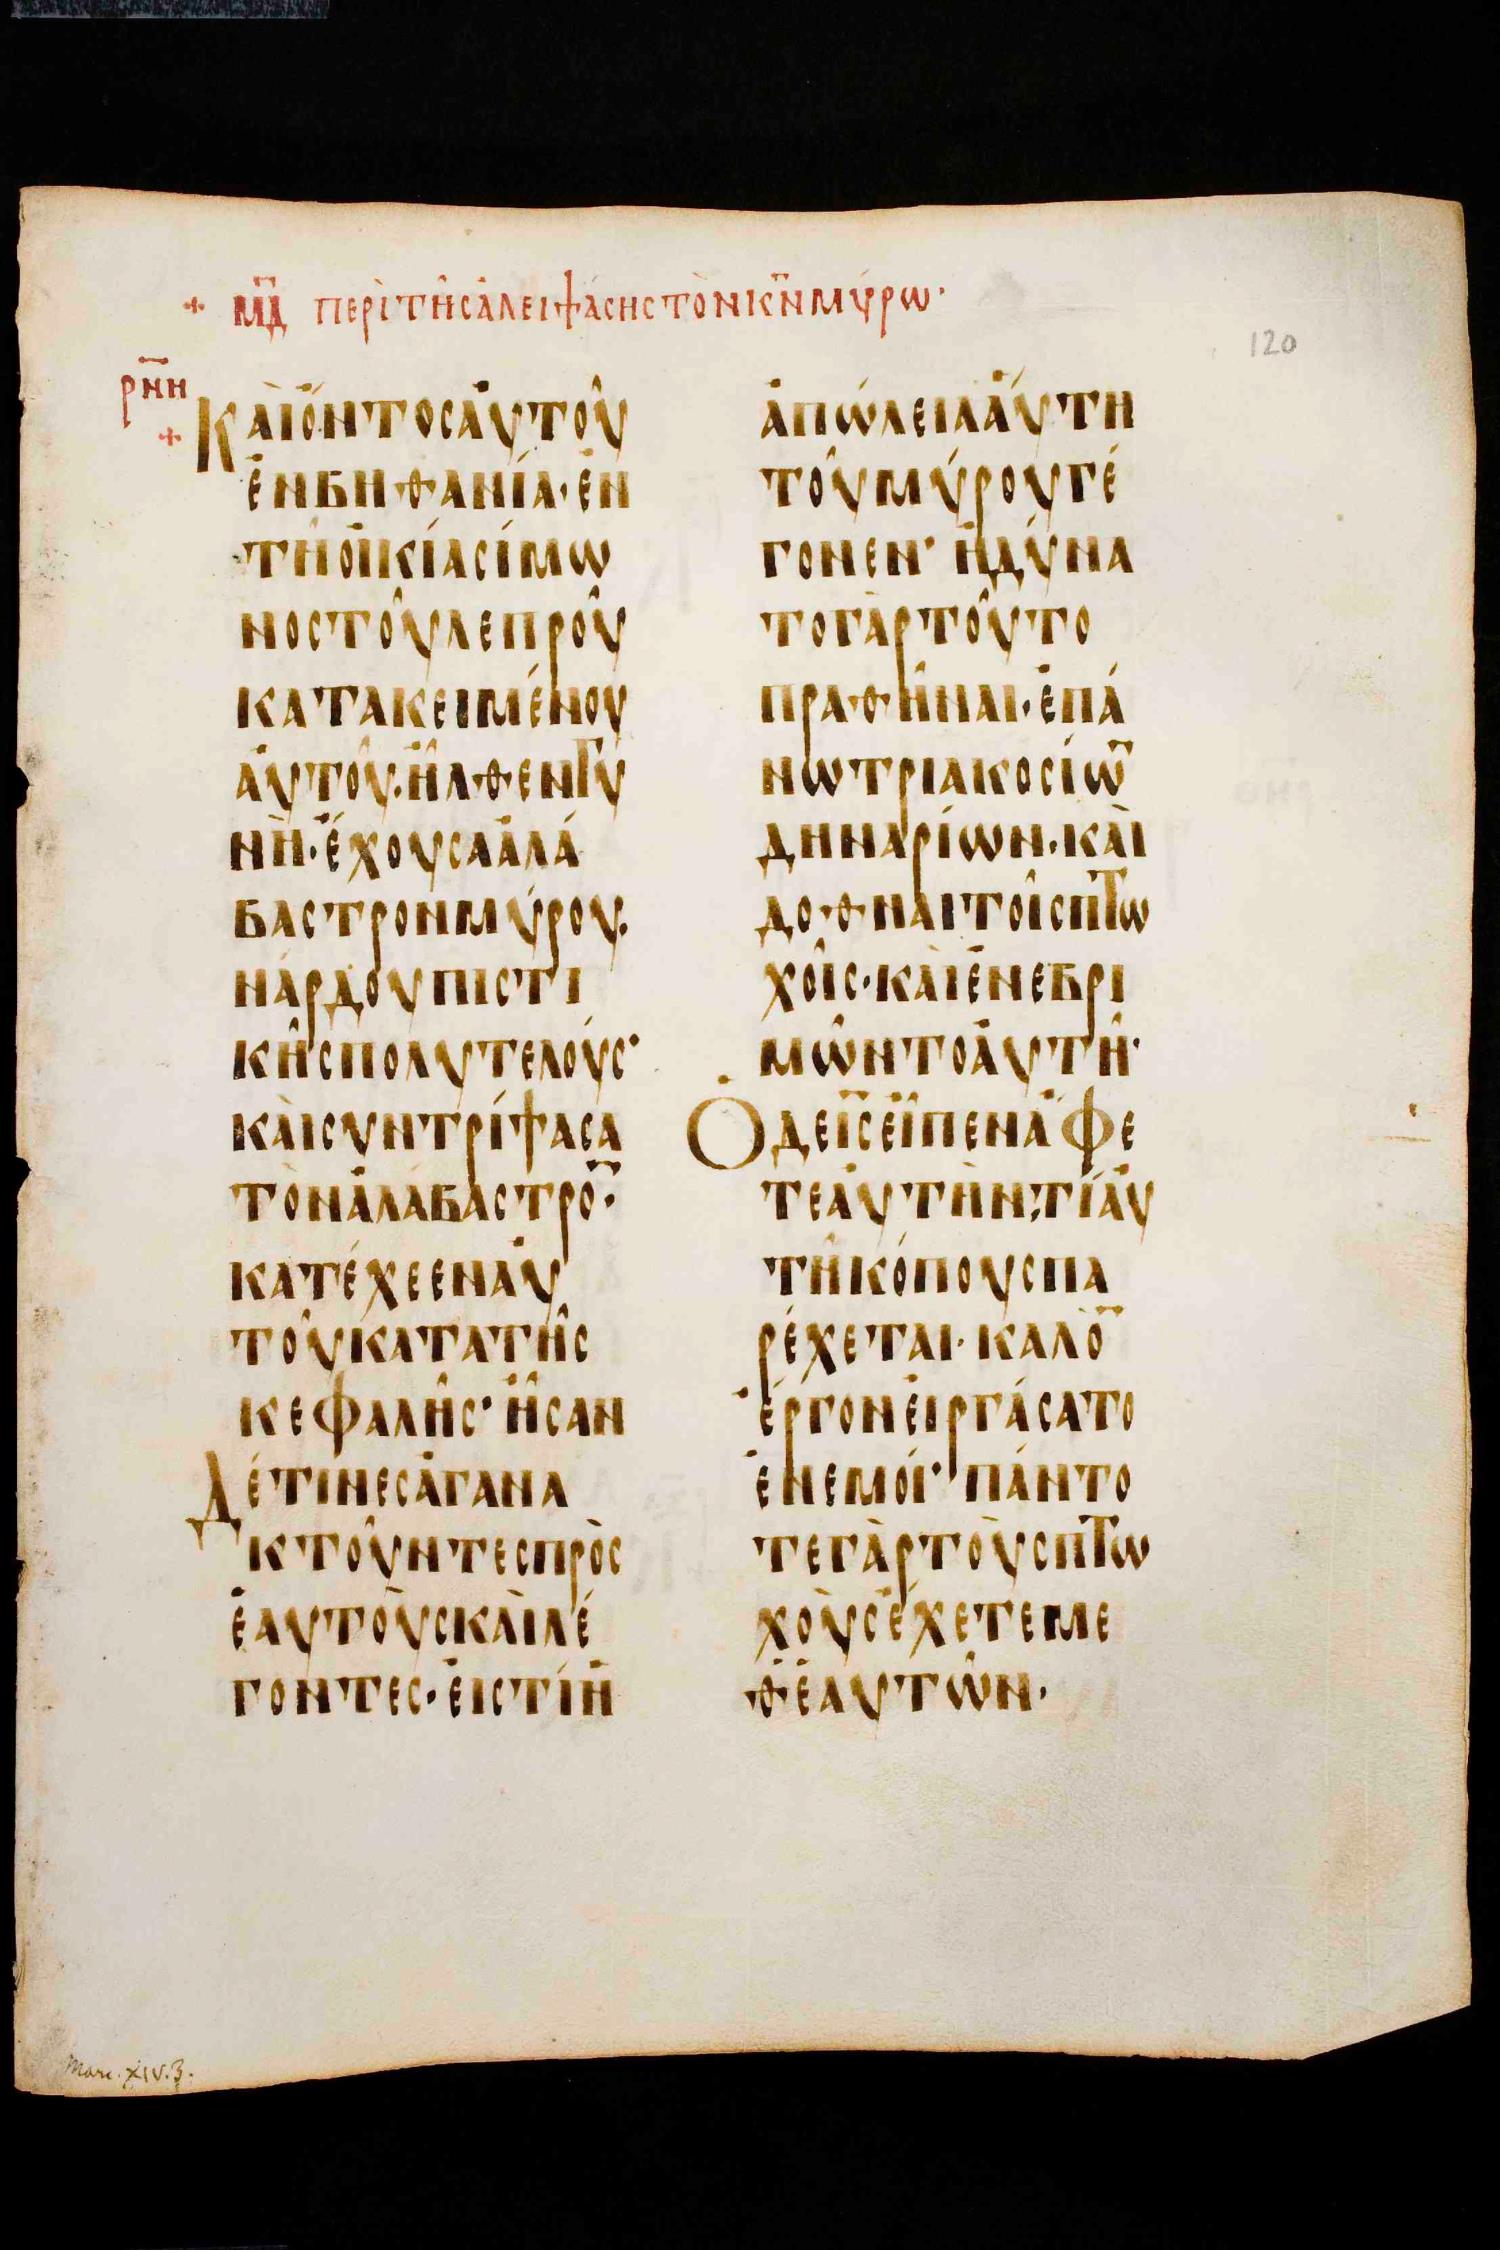 + ΜΔ ΠΕΡῚ ΤΗ͂Σ ἈΛΕΙΨΆΣΗΣ ΤῸΝ ΚΝ ΜΎΡΩ·
120
ΡΝΗ
+
ΚΑῚ ὌΝΤΟΣ ἈΥΤΟΥ͂
ἘΝ ΒΗΘΑΝΊΑ· ἘΝ
ΤΗ͂ ὈΙΚΊΑ ΣΊΜΩ
ΝΟΣ ΤΟΥ͂ ΛΕΠΡΟΥ͂
ΚΑΤΑΚΕΙΜΈΝΟΥ
ἈΥΤΟΥ͂. ἮΛΘΕΝ ΓΥ
ΝῊ· ἜΧΟΥΣΑ ἈΛΆ
ΒΑΣΤΡΟΝ ΜΎΡΟΥ.
ΝΆΡΔΟΥ ΠΙΣΤΙ
ΚΗ͂Σ ΠΟΛΥΤΕΛΟΎΣ·
ΚΑῚ ΣΥΝΤΡΊΨΑΣΑ
ΤῸΝ ἈΛΆΒΑΣΤΡΟ̅·
ΚΑΤΈΧΕΕΝ ἈΥ
ΤΟΥ͂ ΚΑΤΑ ΤΗ͂Σ
ΚΕΦΑΛΗ͂Σ· ἮΣΑΝ
ΔΈ ΤΙΝΕΣ ἈΓΑΝΑ
ΚΤΟΥ͂ΝΤΕΣ ΠΡῸΣ
ἙΑΥΤΟῪΣ ΚΑῚ ΛΈ
ΓΟΝΤΕΣ· ἘΙΣ ΤΊ Ἡ
ἈΠΏΛΕΙΑ ἍΥΤΗ
ΤΟΥ͂ ΜΎΡΟΥ ΓΈ
ΓΟΝΕΝ· ἨΔΎΝΑ
ΤΟ ΓᾺΡ ΤΟΥ͂ΤΟ
ΠΡΑΘΗ͂ΝΑΙ· ἘΠΆ
ΝΩ ΤΡΙΑΚΟΣΊΩ̅
ΔΗΝΑΡΊΩΝ· ΚΑῚ
ΔΟΘΝΑΙ ΤΟΙ͂Σ ΠΤΩ
ΧΟΙ͂Σ· ΚΑῚ ἘΝΕΒΡΙ
ΜΩ͂ΝΤΟ ἈΥΤΗ͂·
Ὁ ΔΕ ΙΣ ΕἾΠΕΝ ἌΦΕ
ΤΕ ἈΥΤῊΝ; ΤΊ ἈΥ
ΤΗ͂ ΚΌΠΟΥΣ ΠΑ
ΡΈΧΕΤΑΙ· ΚΑΛῸ̅
ἜΡΓΟΝ ἘΙΡΓΆΣΑΤΟ
ἘΝ ΕΜΟΊ· ΠΆΝΤΟ
ΤΕ ΓᾺΡ ΤΟῪΣ ΠΤΩ
ΧΟῪΣ ἜΧΕΤΕ ΜΕ
Θ ἙΑΥΤΩ͂Ν·
Marc. XIV. 3.